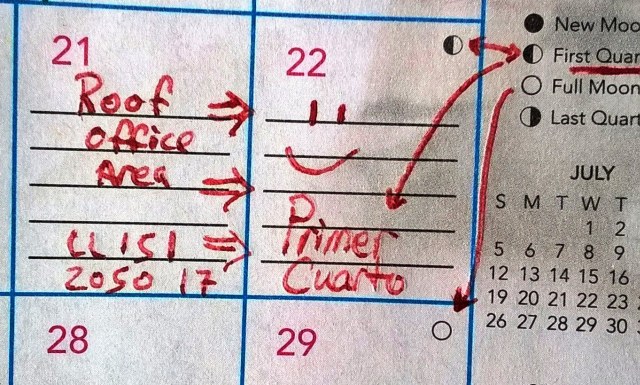 21
Roof
office
Area
LL ISI
2050 17
22
Primer
Cuarto
28
29
New Moo
First Quar
Full Moon
Last Quart
JULY
S M T W T
1 2
5 6 7 8 9
12 13 14 15 16
19 20 21 22 23
26 27 28 29 30